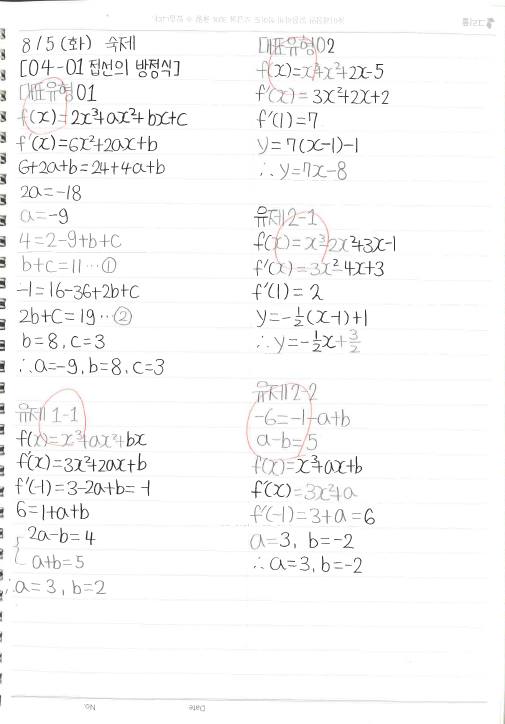 8/5 (화) 숙제
[04-01 접선의 방정식]
대표유형01
f(x)=2x³+ax²+bx+c
f'(x)=6x²+2ax+b
6+2a+b=24+4a+b
2a=-18
a=-9
4=2-9+b+c
b+c=11…①
-1=16-36+2b+c
2b+c=19…②
b=8, c=3
∴a=-9, b=8, c=3
유제 1-1
f(x)=x³+ax²+bx
f'(x)=3x²+2ax+b
f'(-1)=3-2a+b=-1
6=1+a+b
2a-b=4
a+b=5
∴a=3, b=2
대표유형02
f(x)=x³+x²+2x-5
f'(x)=3x²+2x+2
f'(1)=7
y=7(x-1)-1
∴y=7x-8
유제 2-1
f(x)=x³-2x²+3x-1
f'(x)=3x²-4x+3
f'(1)=2
y=-½(x-1)+1
∴y=-½x+3/2
유제 2-2
-6=-1-a+b
a-b=5
f(x)=x³+ax+b
f(x)=3x²+a
f'(-1)=3+a=6
a=3, b=-2
∴a=3, b=-2
Date
No.